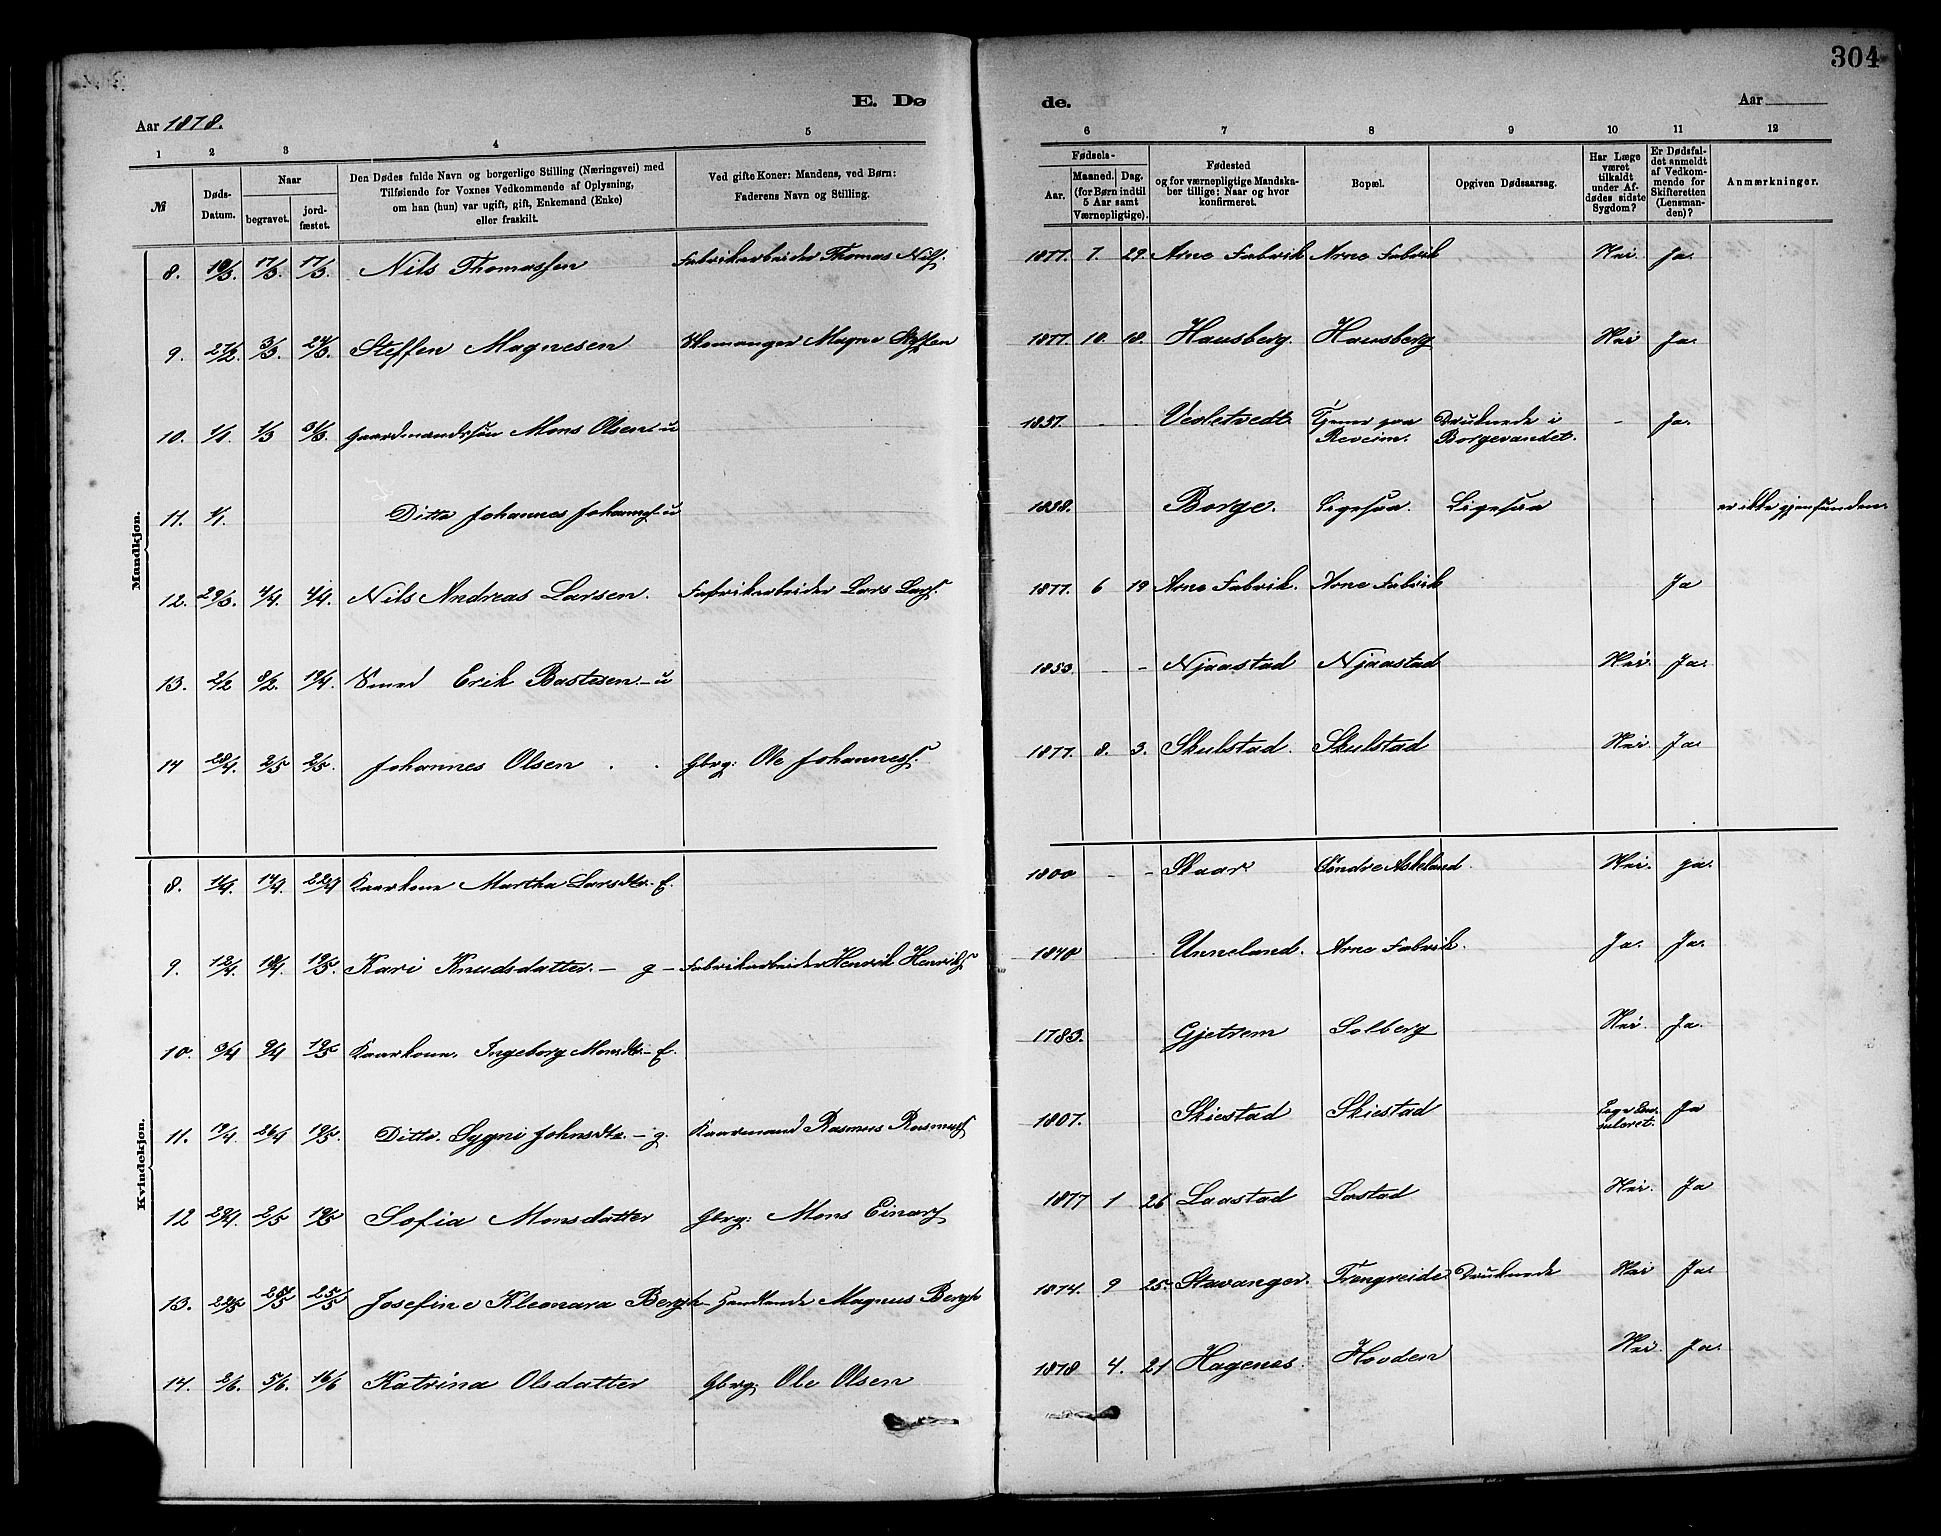 304
E. Dø de.
Aar 1878. Aar
1 2 3 4 5 6 7 8 9 10 11 12
№ Døds-Datum. Naar begravet. jord-fæstet. Den Dødes fulde Navn og borgerlige Stilling (Næringsvei) med Tilføiende for Voxnes Vedkommende af Oplysning, om han (hun) var ugift, gift, Enkemand (Enke) eller fraskilt. Ved gifte Koner: Mandens, ved Børn: Faderens Navn og Stilling. Fødsels- Aar. Maaned. Dag. (for Børn indtil 5 Aar samt Værnepligtige). Fødested og for værnepligtige Mandskaber tillige: Naar og hvor konfirmeret. Bopæl. Opgiven Dødsaarsag. Har Læge været tilkaldt under Afdødes sidste Sygdom? Er Dødsfaldet anmeldt af Vedkommende for Skifteretten (Lensmanden)? Anmærkninger.
Mandkjøn.
8. 10/3. 17/3. 17/3. Nils Thomassen Fabrikarbeider Thomas Nils. 1877. 7. 29. Arne Fabrik Arne Fabrik Nei. Ja.
9. 27/2. 3/3. 24/3. Steffen Magnesen Magne Steffen 1877. 10. 18. Hausberg. Hausberg Nei Ja.
10. 1/1. 1/3 31/3. Gaardmandssøn Mons Olsen - u 1837. - - Vedletvedt. Tjener paa Reveim. Druknede i Borgevandet. - Ja.
11. 1/1. Ditto Johannes Johannesf. u 1838. Borge. Ligesaa. Ligesaa er ikke gjenfunden.
12. 29/3. 4/4. 4/4. Nils Andreas Larsen. Fabrikarbeider Lars Lars. 1877. 6 19 Arne Fabrik. Arne Fabrik Ja
13. 2/2 8/2. 19/4. Smed Erik Bastesen. - u 1853. - - Njaastad Njaastad Nei. Ja.
14 28/4. 2/5 2/5. Johannes Olsen Gbrg: Ole Johannesf. 1877. 8. 3. Skulstad. Skulstad Nei. Ja.
Kvindekjøn.
8. 11/4. 14/4. 22/4 Kaarkone Martha Larsdtr. - E. 1800 - - Skaar Søndre Askeland. Nei. ja.
9. 12/4. 18/4. 19/5. Kari Knudsdatter. - g - Fabrikarbeider Henrik Henriks 1840 Unneland. Arne Fabrik. Ja. Ja.
10. 3/4 9/4 19/5 Kaarkone. Ingeborg Monsdtr. - E. 1783. Gjetrem Solberg Nei. Ja.
11. 17/4. 26/4 19/5. Ditto. Sygni Johnsdtr. - g. Kaarmand Rasmus Rasmusf 1807. Skiestad Skiestad Ja
12 29/4. 2/5 19/5 Sofia Monsdatter Gbrg: Mons Einarf 1877 1 26 Laastad Lastad Nei. Ja
13. 22/5 25/5 25/5 Josefine Kleonara Bergh - Handlende Magnus Bergh 1874. 9 25. Stavanger. Trengreide. Druknede Nei Ja.
14. 2/6. 5/6. 16/6 Katrina Olsdatter Gbrg: Ole Olsen 1878 4. 21 Hagenes. Hovden Nei. Ja.